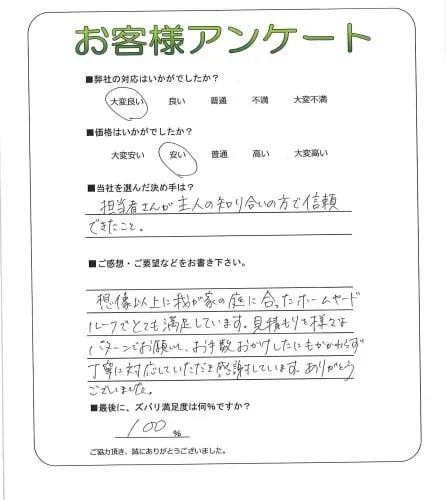 お客様アンケート
■弊社の対応はいかがでしたか？
大変良い 良い 普通 不満 大変不満
■価格はいかがでしたか？
大変安い 安い 普通 高い 大変高い
■当社を選んだ決め手は？
担当者さんが主人の知り合いの方で信頼
できたこと。
■ご感想・ご要望などをお書き下さい。
想像以上に我が家の庭に合ったホームヤード
ルーフでとても満足しています。見積もりを様々な
パターンでお願いし、お手数おかけしたにもかかわらず
丁寧に対応していただき感謝しています。ありがとう
ございました。
■最後に、ズバリ満足度は何％ですか？
100 %
ご協力頂き、誠にありがとうございました。